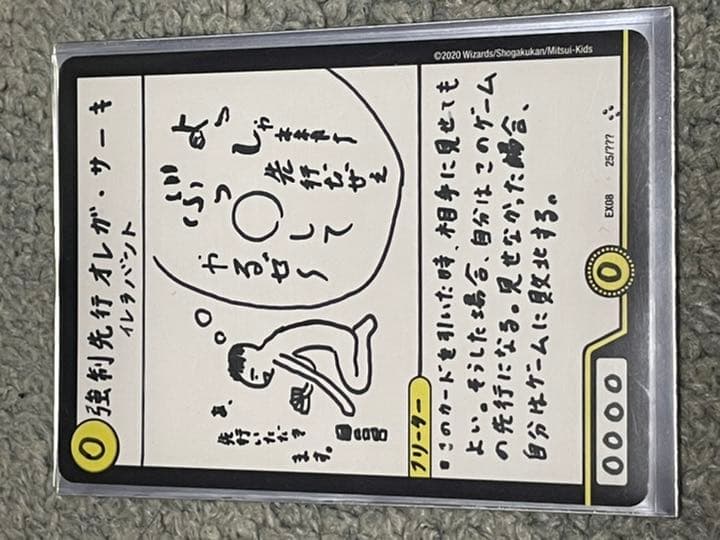 0
強制先行 オレガ・サーキ
イレラバント
よっ
しゃ
先行だぜぇ
ぶっ
○して
やるぜ〜
あ、
先行いただき
ます。
フリーター
■このカードを引いた時、相手に見せても
よい。そうした場合、自分はこのゲーム
の先行になる。見せなかった場合、
自分はゲームに敗北する。
0
0000
EX08 25/???
©2020 Wizards/Shogakukan/Mitsui-Kids